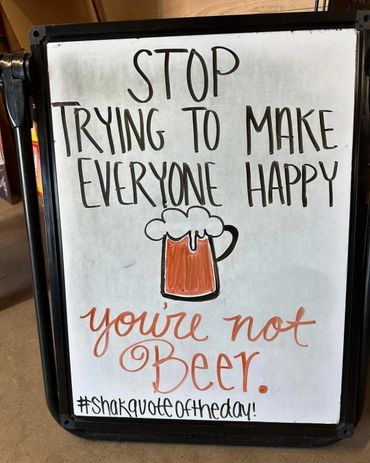 STOP
TRYING TO MAKE
EVERYONE HAPPY
you're not
Beer.
#shakquoteoftheday!